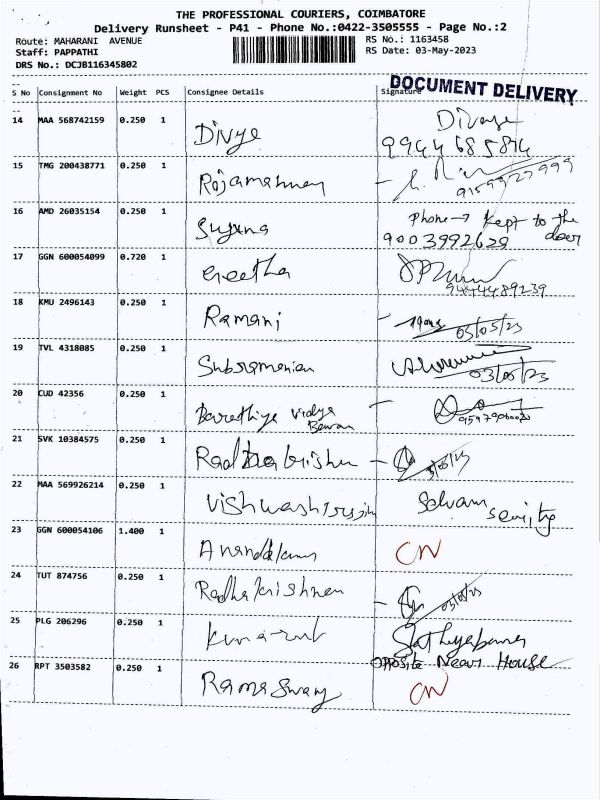 THE PROFESSIONAL COURIERS, COIMBATORE
Delivery Runsheet - P41 - Phone No.:0422-3505555 - Page No.:2
Route: MAHARANI AVENUE
RS No.: 1163458
Staff: PAPPATHI
RS Date: 03-May-2023
DRS No.: DCJB116345802
DOCUMENT DELIVERY
S No Consignment No Weight PCS Consignee Details Signature
14 MAA 568742159 0.250 1 Divye Divaye
9944685814
15 TMG 200438771 0.250 1 Rajamanney
9159927999
16 AMD 26035154 0.250 1 Sujana Phone → kept to the
9003992629 door
17 GGN 600054099 0.720 1 Geetha
9444489239
18 KMU 2496143 0.250 1 Ramani 03/05/23
19 TVL 4318085 0.250 1 Subramanian
03/05/23
20 CUD 42356 0.250 1 Barathiya Vidya
Bavan
21 SVK 10384575 0.250 1 Radhakrishn 3/5/23
22 MAA 569926214 0.250 1 Selvam
23 GGN 600054106 1.400 1 Anandakumar CN
24 TUT 874756 0.250 1 Radhakrishnan 03/05/23
25 PLG 206296 0.250 1 Sathyabama
opposite Near House
26 RPT 3503582 0.250 1 Ramaswamy CN